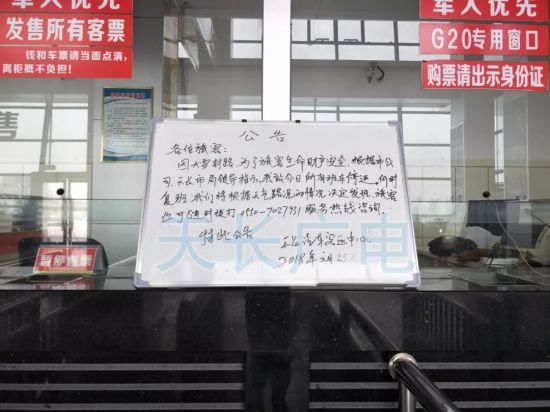 军人优先
发售所有客票
钱和车票请当面点清，
离柜概不负责！
军人优先
G20专用窗口
购票请出示身份证
售
公告
各位旅客：
因大雪封路，为了旅客生命财产安全，根据市公
司、天长市局领导指示，我站今日所有班车停运，何时
复班，我们将根据天气路况的情况决定发班，旅客
也可随时拨打0550-7027931服务热线咨询。
特此公告
汽车客运中心
2018年元月25
天长 电
暂停售票